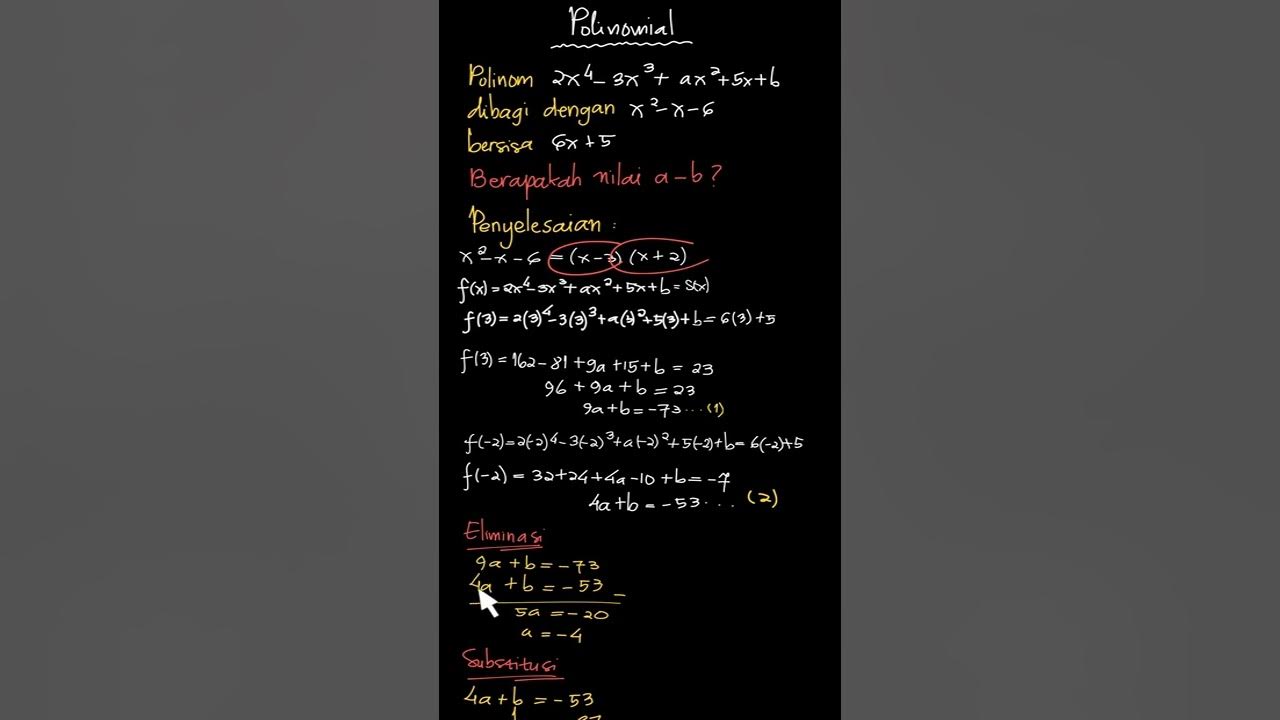 Polinomial
Polinom 2x⁴ - 3x³ + ax² + 5x + b
dibagi dengan x² - x - 6
bersisa 6x + 5
Berapakah nilai a - b ?
Penyelesaian :
x² - x - 6 = (x - 3) (x + 2)
f(x) = 2x⁴ - 3x³ + ax² + 5x + b = S(x)
f(3) = 2(3)⁴ - 3(3)³ + a(3)² + 5(3) + b = 6(3) + 5
f(3) = 162 - 81 + 9a + 15 + b = 23
96 + 9a + b = 23
9a + b = -73 ... (1)
f(-2) = 2(-2)⁴ - 3(-2)³ + a(-2)² + 5(-2) + b = 6(-2) + 5
f(-2) = 32 + 24 + 4a - 10 + b = -7
4a + b = -53 ... (2)
Eliminasi
9a + b = -73
4a + b = -53 -
5a = -20
a = -4
Substitusi
4a + b = -53